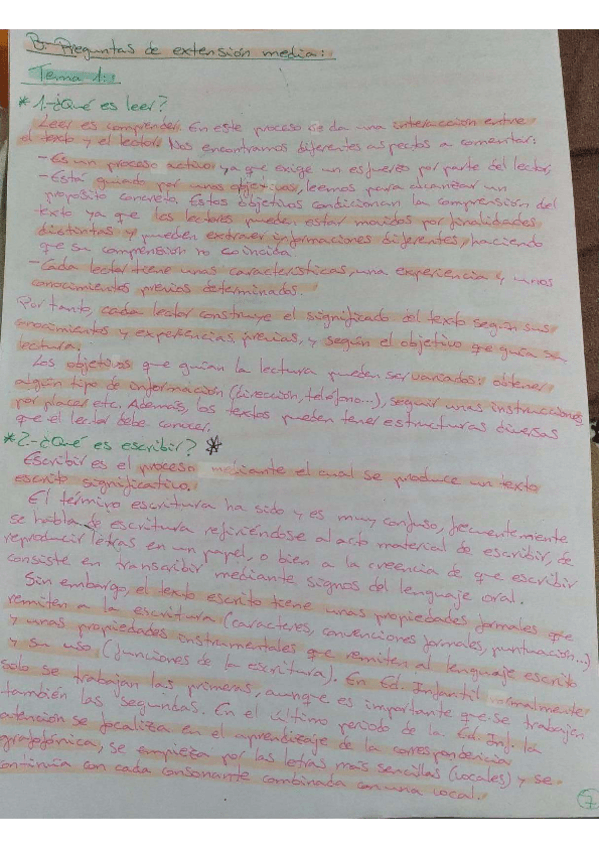 B. Preguntas de extensión media:
Tema 1:
* 1.-¿Qué es leer?
Leer es comprender. En este proceso se da una interacción entre
el texto y el lector. Nos encontramos diferentes aspectos a comentar:
- Es un proceso activo, ya que exige un esfuerzo por parte del lector,
- Está guiado por unos objetivos, leemos para alcanzar un
propósito concreto. Estos objetivos condicionan la comprensión del
texto ya que los lectores pueden estar movidos por finalidades
distintas y pueden extraer informaciones diferentes, haciendo
que su comprensión no coincida.
- Cada lector tiene unas características, una experiencia y unos
conocimientos previos determinados.
Por tanto, cada lector construye el significado del texto según sus
conocimientos y experiencias previas, y según el objetivo que guía su
lectura.
Los objetivos que guían la lectura pueden ser variados: obtener
algún tipo de información (dirección, teléfono...), seguir unas instrucciones,
por placer etc. Además, los textos pueden tener estructuras diversas
que el lector debe conocer.
* 2.-¿Qué es escribir? *
Escribir es el proceso mediante el cual se produce un texto
escrito significativo.
El término escritura ha sido y es muy confuso, frecuentemente
se habla de escritura refiriéndose al acto material de escribir, de
reproducir letras en un papel, o bien a la creencia de que escribir
consiste en transcribir mediante signos del lenguaje oral.
Sin embargo, el texto escrito tiene unas propiedades formales que
remiten a la escritura (caracteres, convenciones formales, puntuación...)
y unas propiedades instrumentales que remiten al lenguaje escrito
y su uso (funciones de la escritura). En Ed. Infantil normalmente
solo se trabajan las primeras, aunque es importante que se trabajen
también las segundas. En el último periodo de la Ed. Inf. la
atención se focaliza en el aprendizaje de la correspondencia
grafofónica, se empieza por las letras más sencillas (vocales) y se
continúa con cada consonante combinada con una vocal.
7